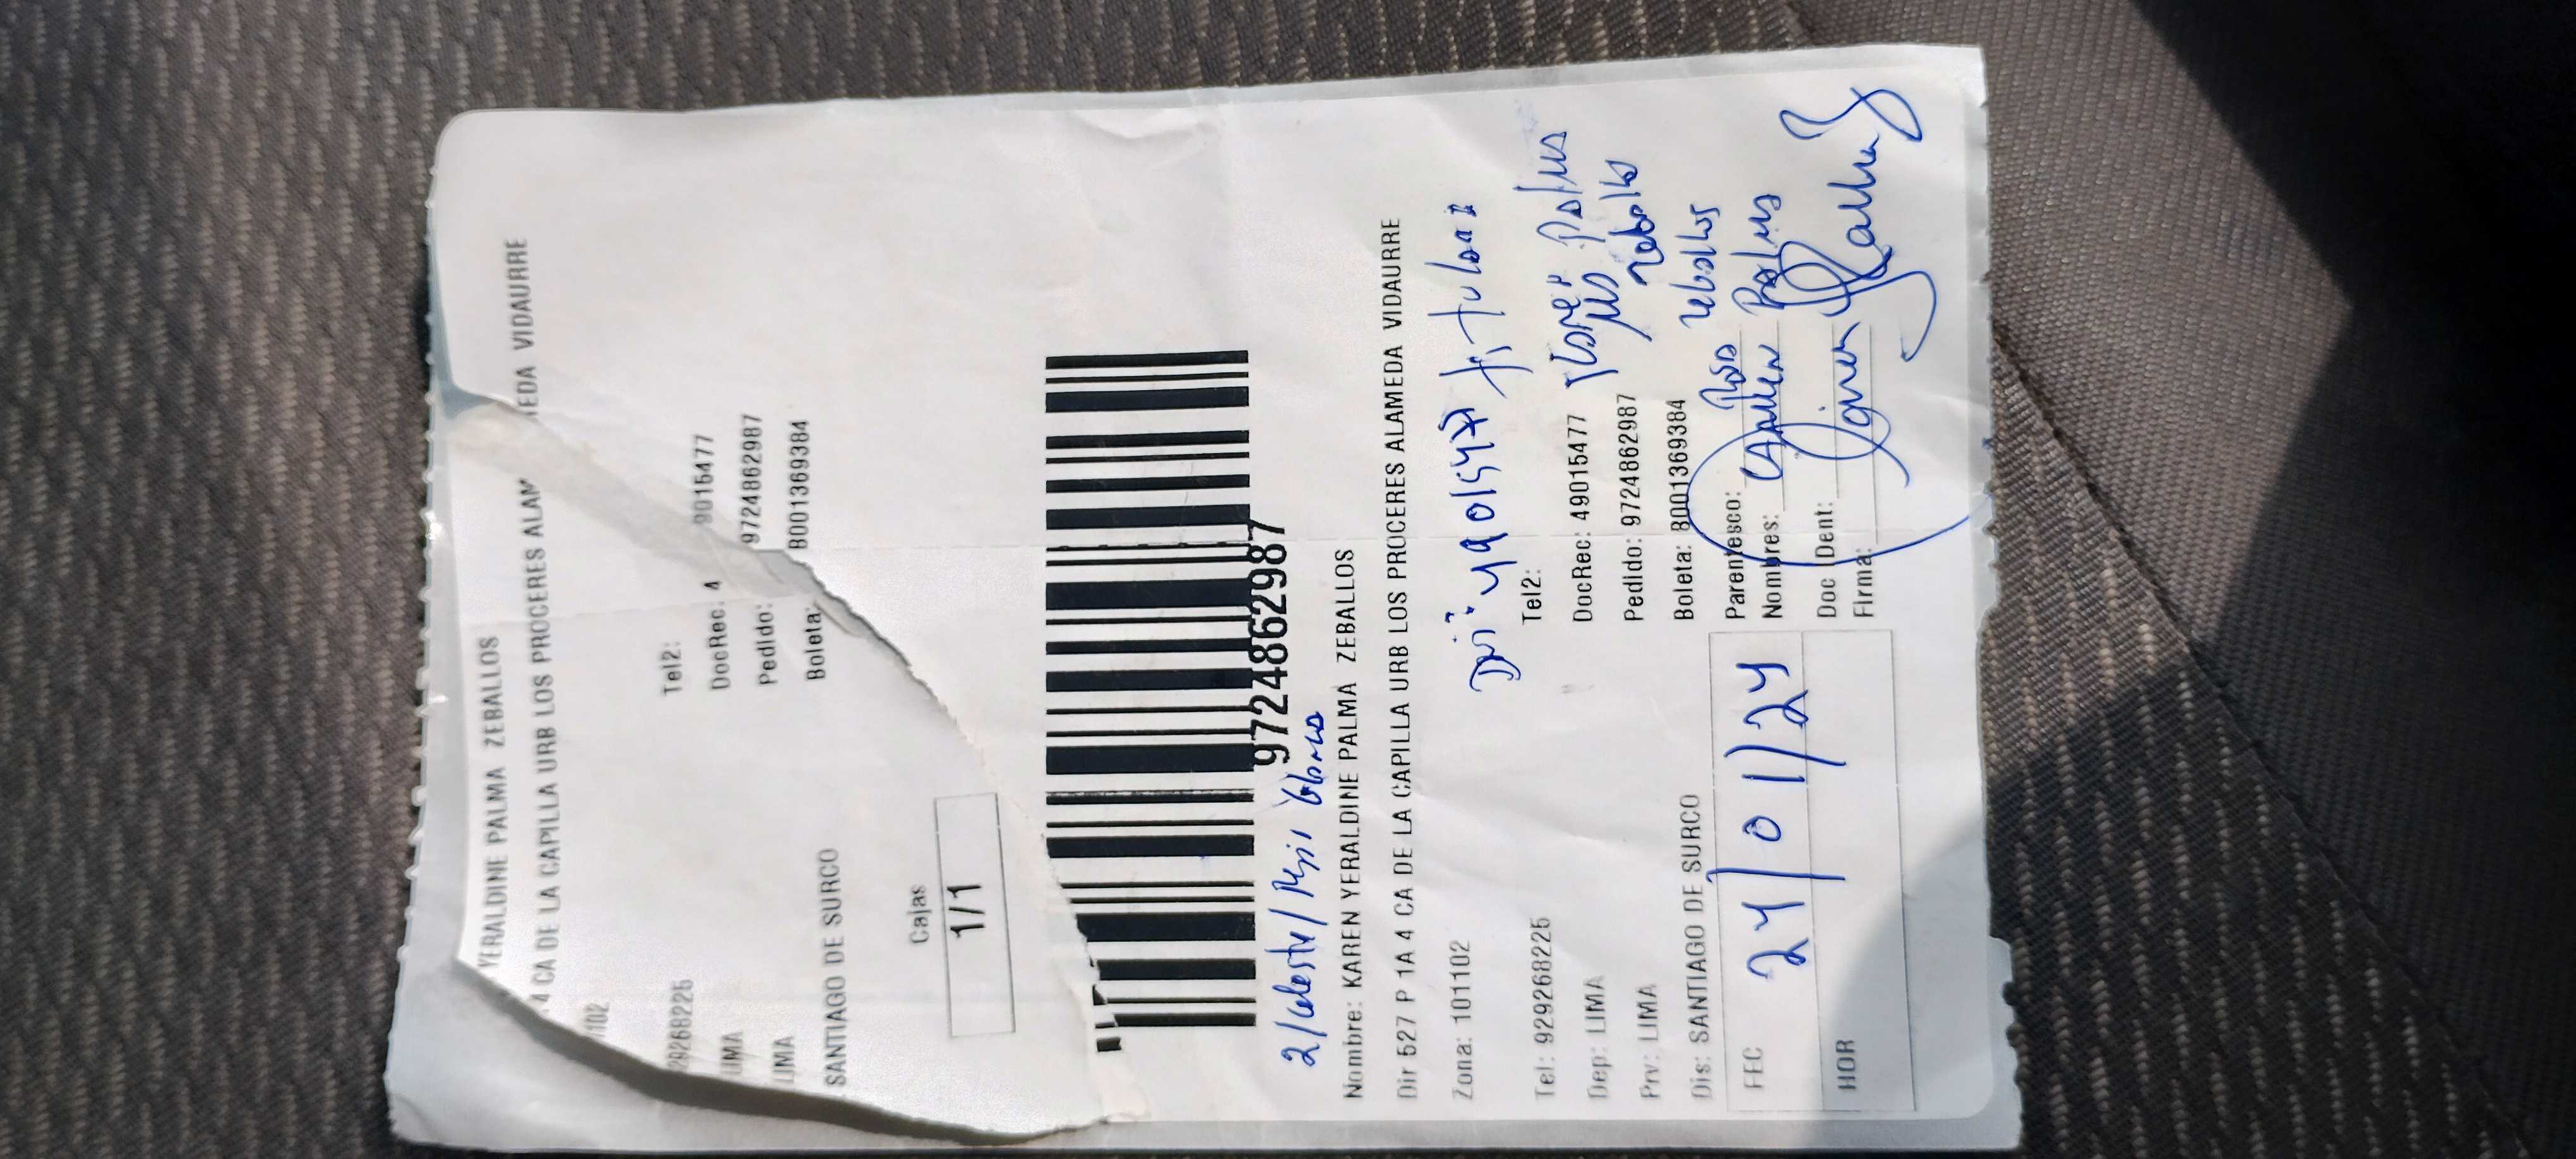 YERALDINE PALMA ZEBALLOS
4 CA DE LA CAPILLA URB LOS PROCERES ALAM EDA VIDAURRE
102
29268225 Tel2:
LIMA DocRec: 4 9015477
LIMA Pedido: 9724862987
SANTIAGO DE SURCO Boleta: B001369384
Cajas
1/1
9724862987
2/celeste/
Nombre: KAREN YERALDINE PALMA ZEBALLOS
Dir 527 P 1A 4 CA DE LA CAPILLA URB LOS PROCERES ALAMEDA VIDAURRE
Zona: 101102
49015477 titular
Tel: 929268225 Tel2:
Dep: LIMA DocRec: 49015477
Palma
Prv: LIMA Pedido: 9724862987
Zeballos
Dis: SANTIAGO DE SURCO Boleta: B001369384
Zeballos
FEC 24/01/24
Parentesco:
Nombres: Carmen Palma
HOR
Doc Ident:
Firma: